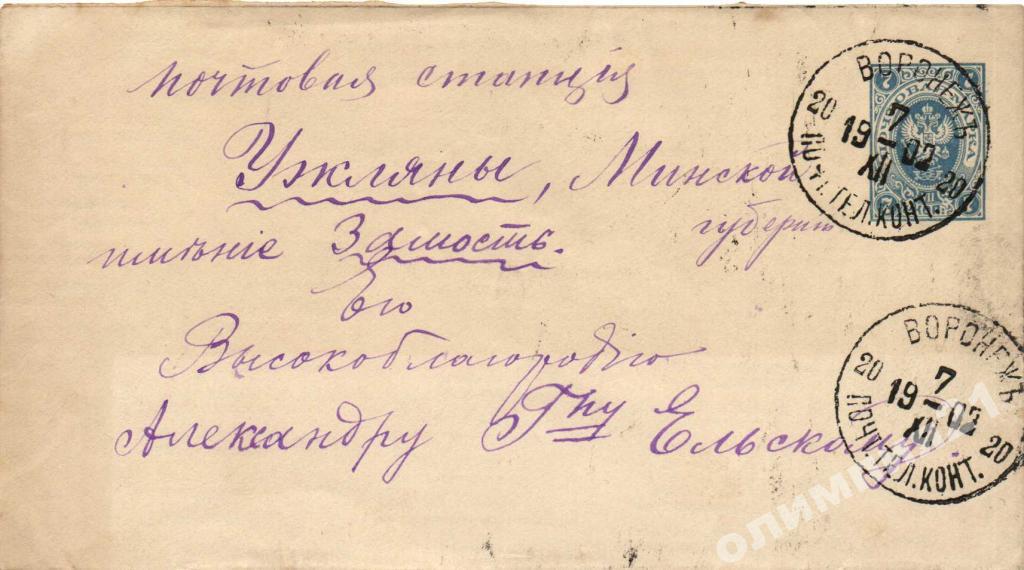 почтовая станція
Узляны, Минской
губерніи
имѣніе Замость.
Его
Высокоблагородію
Александру Гну Ельскому.
ВОРОНЕЖЪ
20 7 20
19–02
XII
ПОЧТ.ТЕЛ.КОНТ.
7 7
7 7
ВОРОНЕЖЪ
20 7 20
19–02
XII
ПОЧТ.ТЕЛ.КОНТ.